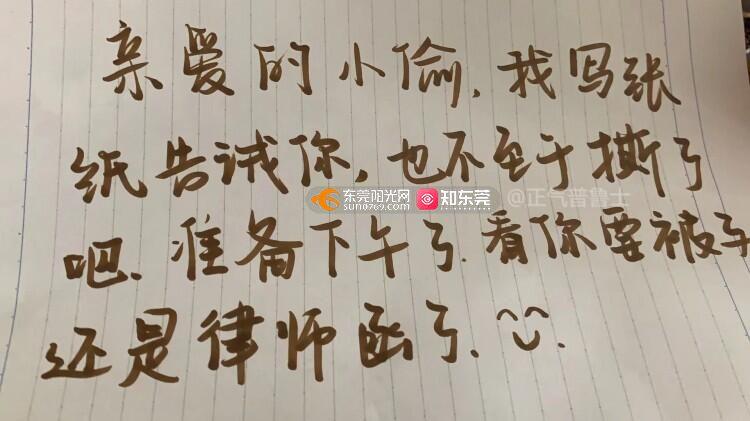 亲爱的小偷，我写张
纸告诫你，也不至于撕了
吧、准备下午了.看你要被
还是律师函了.
东莞阳光网
sun0769.com
知东莞
@正气普鲁士